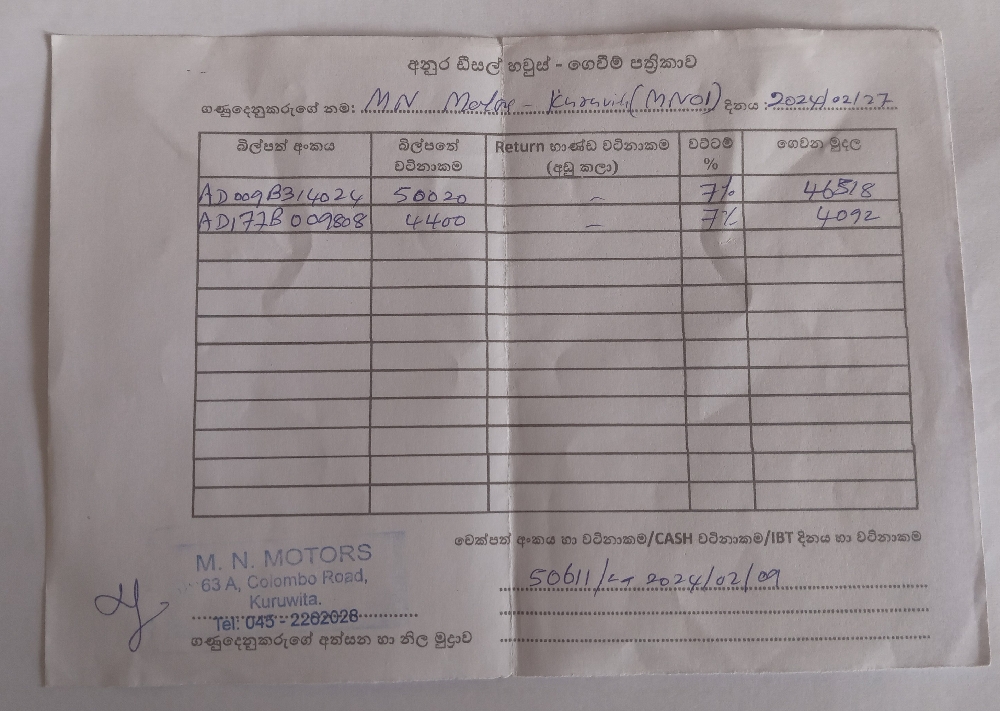 අනුර ඩීසල් හවුස් - ගෙවීම් පත්‍රිකාව
ගණුදෙනුකරුගේ නම: MN Motors - Kuruvita (MN01) දිනය : 2024/02/27
බිල්පත් අංකය බිල්පතේ වටිනාකම Return භාණ්ඩ වටිනාකම (අඩු කලා) වට්ටම් % ගෙවන මුදල
AD009B314024 50020 – 7% 46518
AD177B009808 4400 – 7% 4092
චෙක්පත් අංකය හා වටිනාකම/CASH වටිනාකම/IBT දිනය හා වටිනාකම
50611/ 2024/02/09
M. N. MOTORS
63 A, Colombo Road,
Kuruwita.
Tel: 045 - 2262028
ගණුදෙනුකරුගේ අත්සන හා නිල මුද්‍රාව